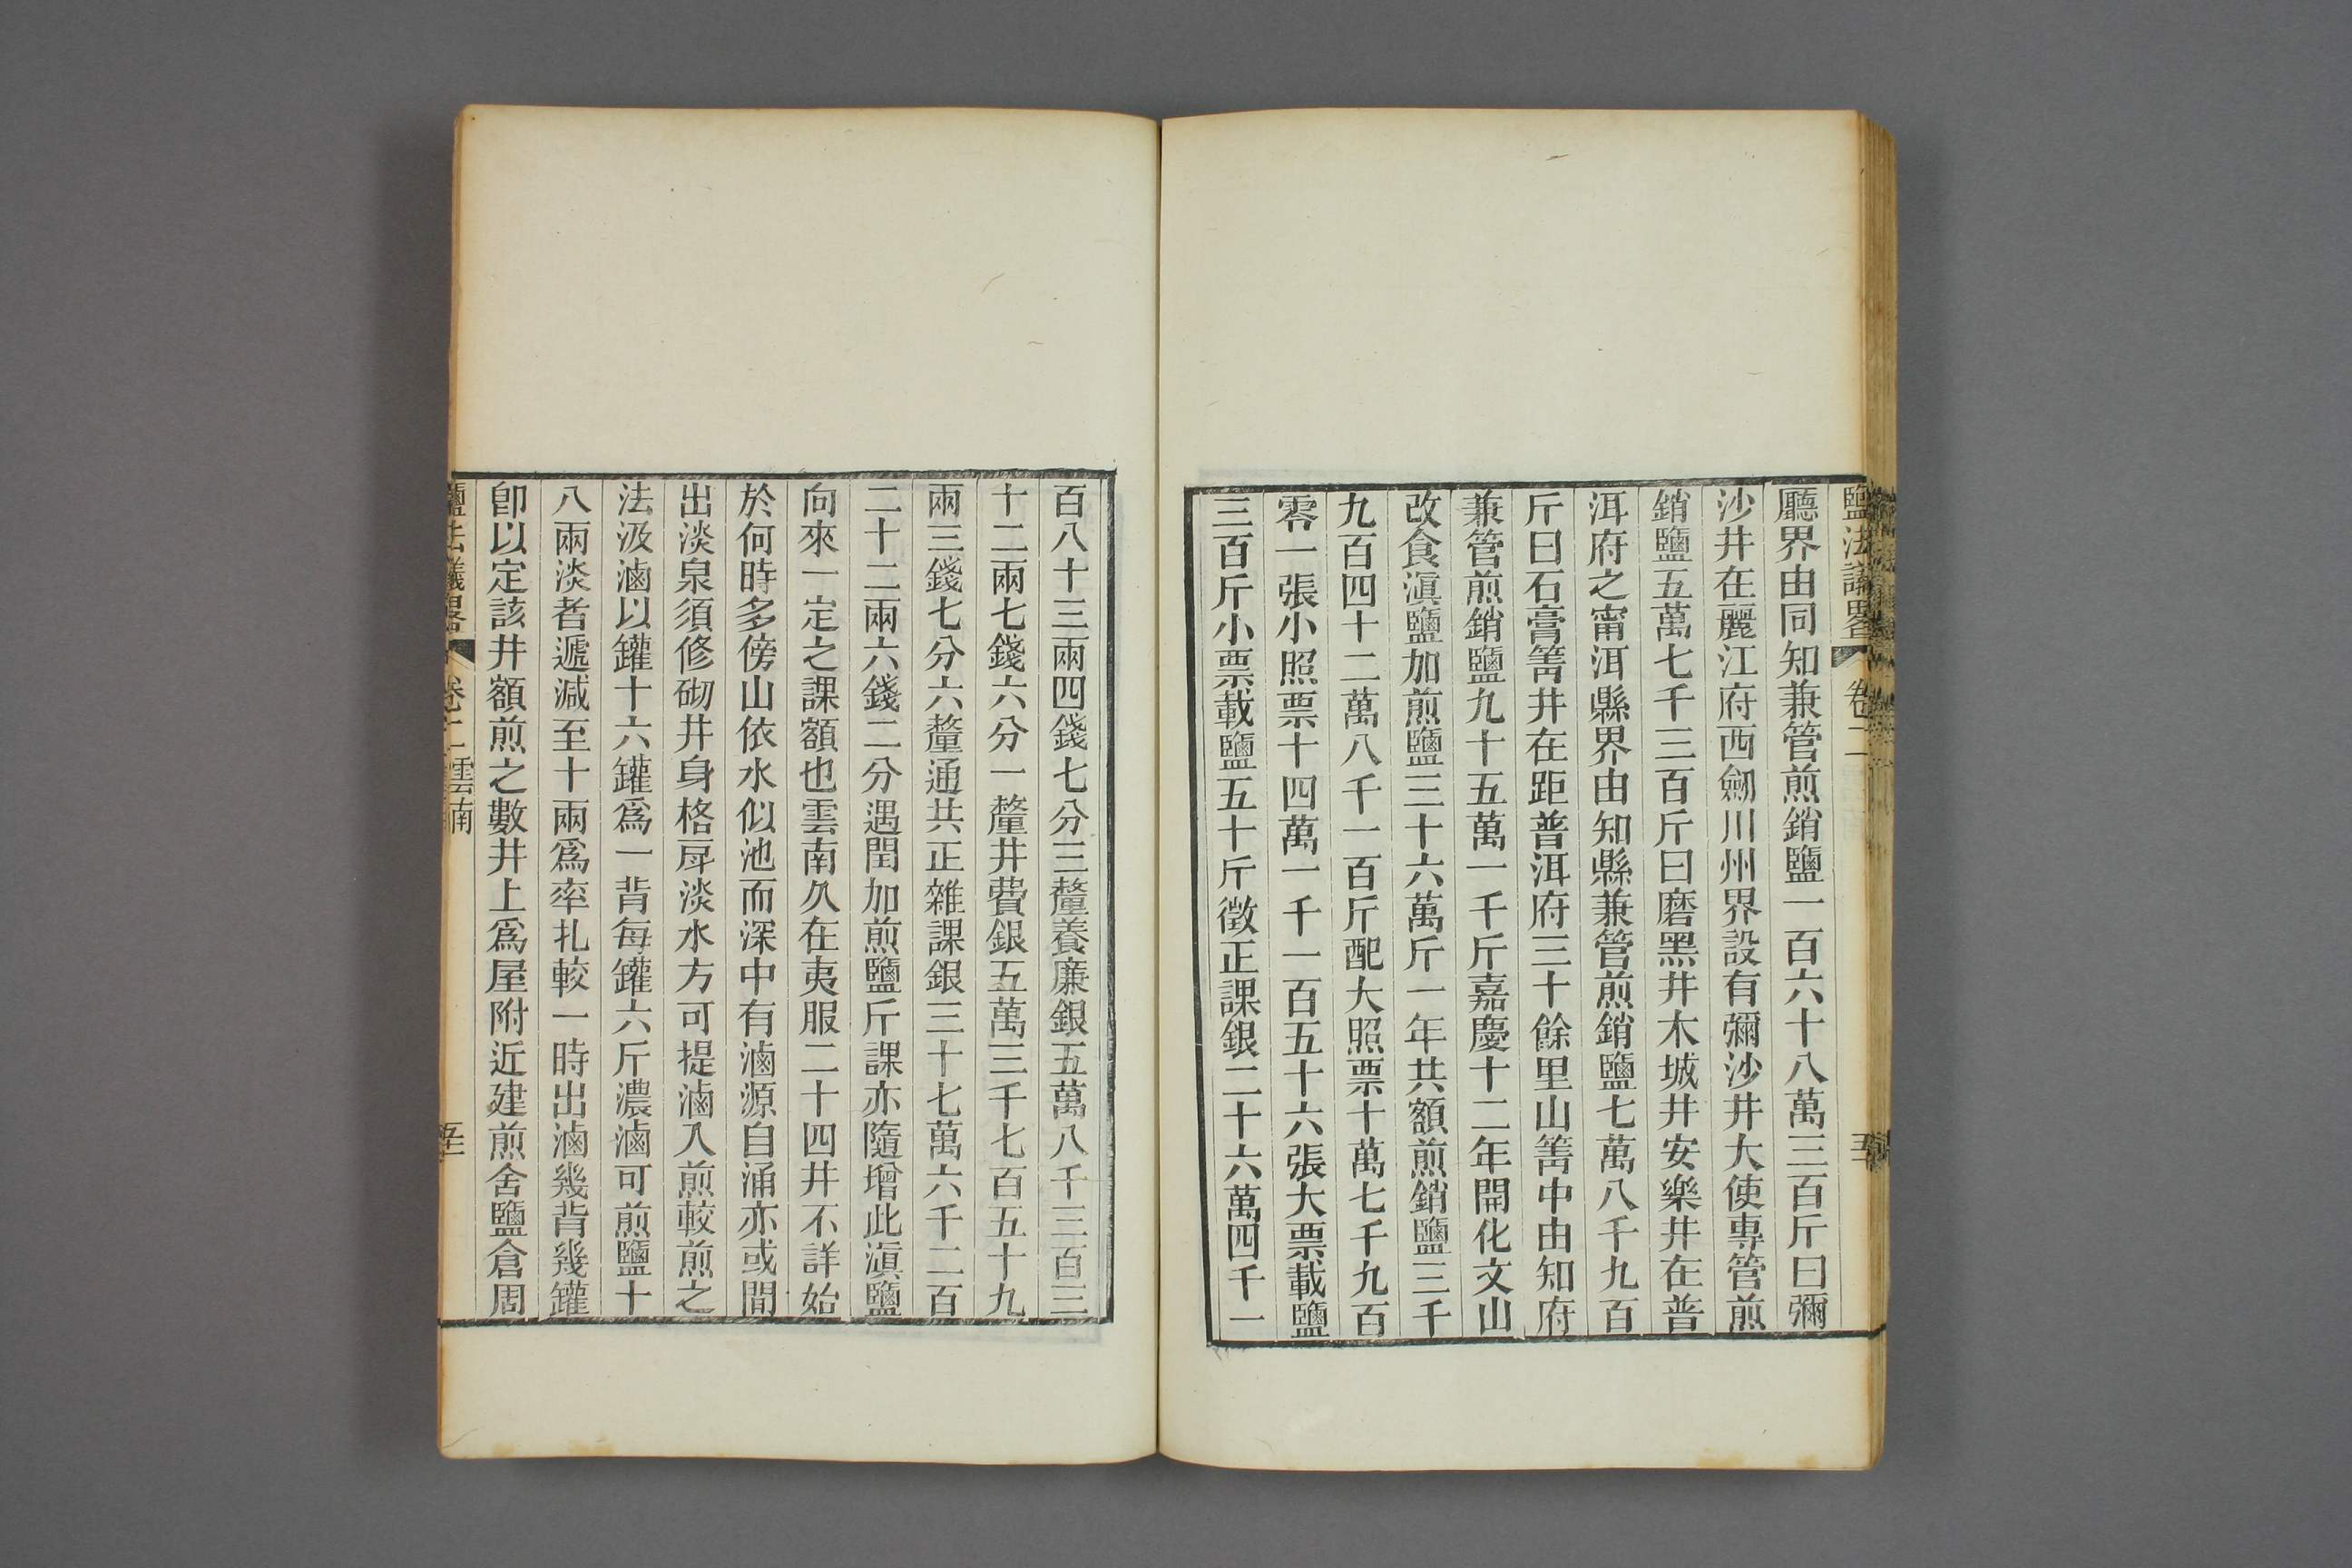 鹽法議畧 卷二 五
廳界由同知兼管煎銷鹽一百六十八萬三百斤曰彌
沙井在麗江府西劒川州界設有彌沙井大使專管煎
銷鹽五萬七千三百斤曰磨黑井木城井安樂井在普
洱府之甯洱縣界由知縣兼管煎銷鹽七萬八千九百
斤曰石膏箐井在距普洱府三十餘里山箐中由知府
兼管煎銷鹽九十五萬一千斤嘉慶十二年開化文山
改食滇鹽加煎鹽三十六萬斤一年共額煎銷鹽三千
九百四十二萬八千一百斤配大照票十萬七千九百
零一張小照票十四萬一千一百五十六張大票載鹽
三百斤小票載鹽五十斤徵正課銀二十六萬四千一
百八十三兩四錢七分三釐養廉銀五萬八千三百三
十二兩七錢六分一釐井費銀五萬三千七百五十九
兩三錢七分六釐通共正雜課銀三十七萬六千二百
二十二兩六錢二分遇閏加煎鹽斤課亦隨增此滇鹽
向來一定之課額也雲南久在夷服二十四井不詳始
於何時多傍山依水似池而深中有滷源自涌亦或間
出淡泉須修砌井身格戽淡水方可提滷入煎較煎之
法汲滷以罐十六罐爲一背每罐六斤濃滷可煎鹽十
八兩淡者遞減至十兩爲率扎較一時出滷幾背幾罐
卽以定該井額煎之數井上爲屋附近建煎舍鹽倉周
鹽法議畧 卷二 雲南